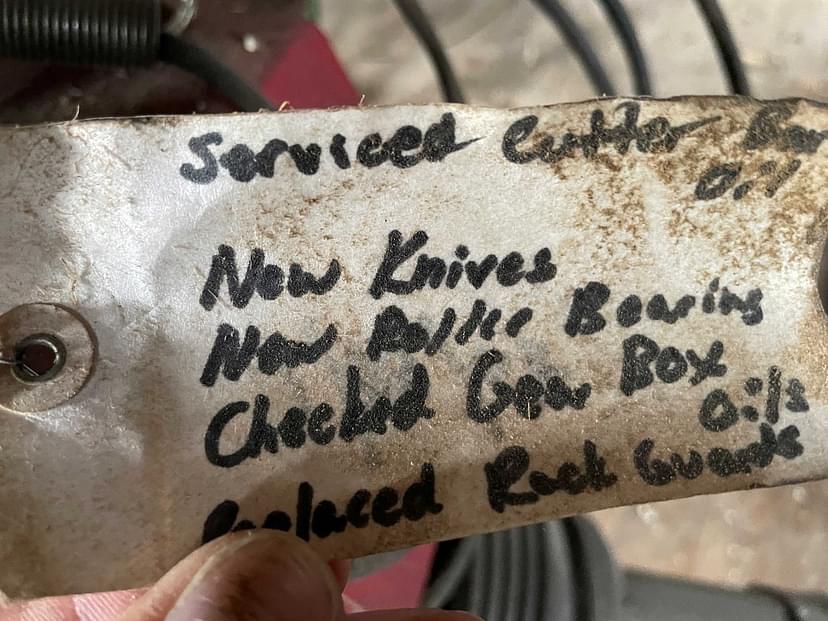 Serviced Cutter Bar
Oil
New Knives
New Roller Bearing
Checked Gear Box
Oils
Replaced Rock Guards